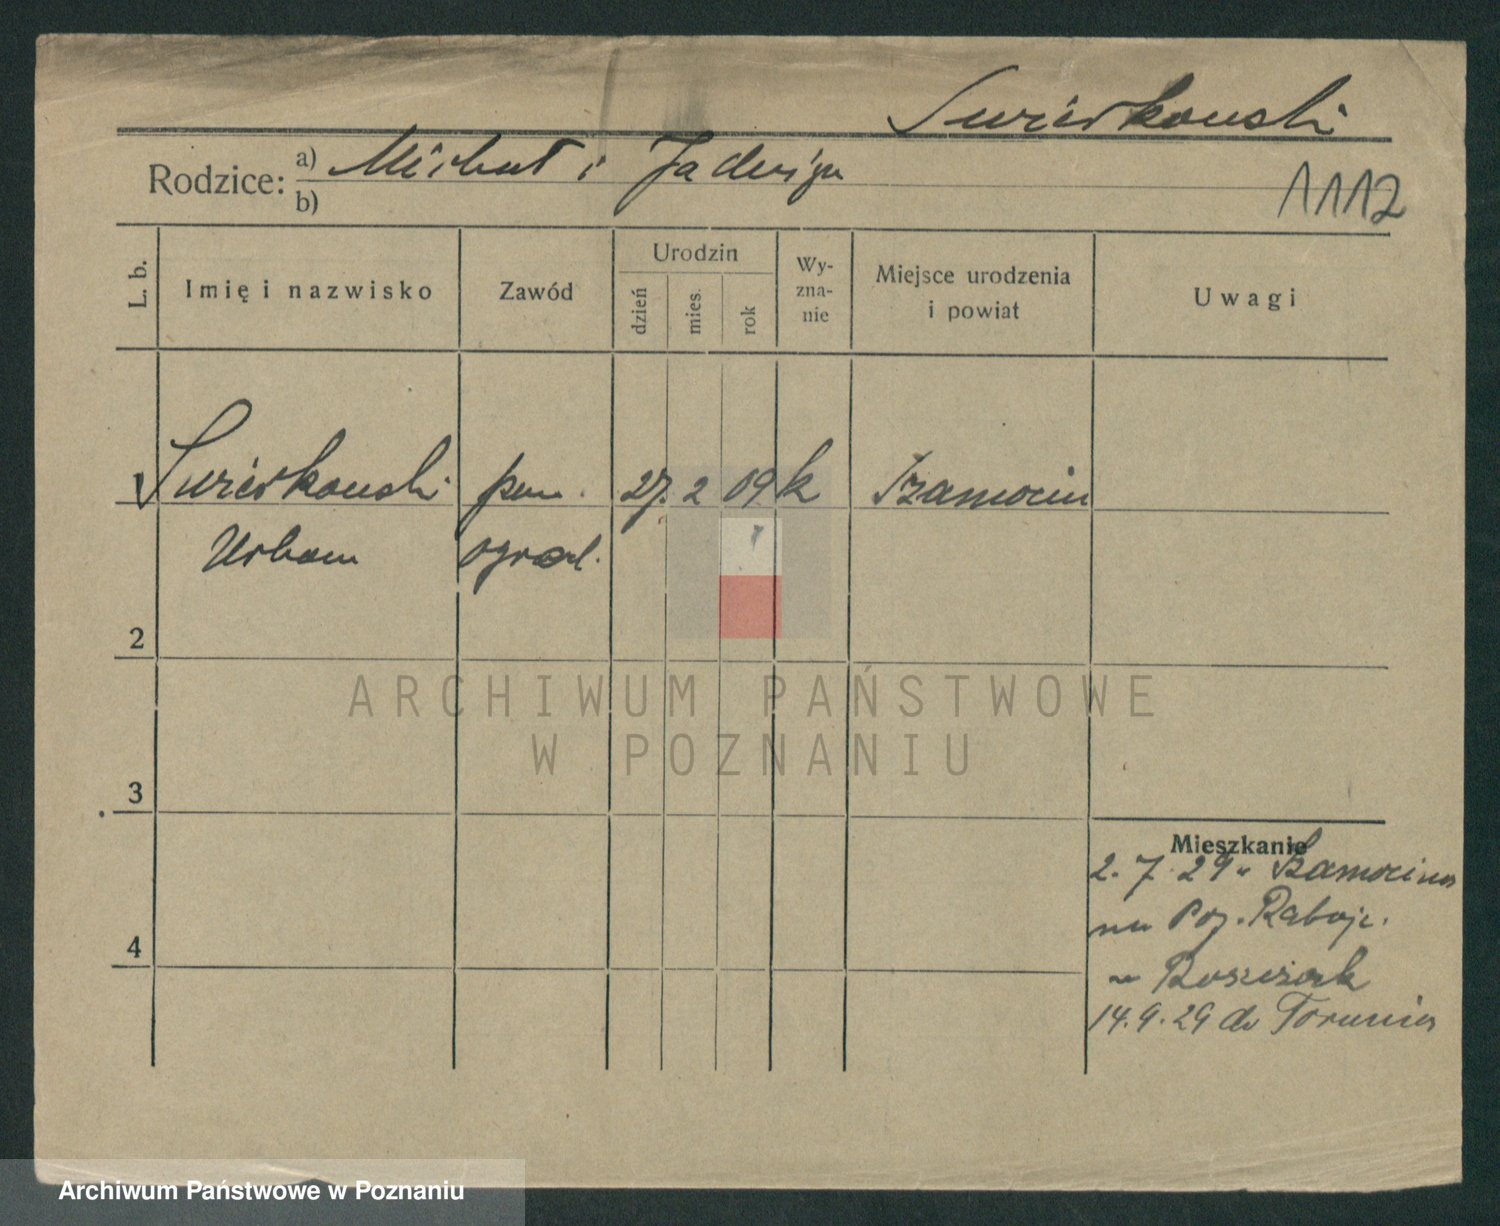 Świerkowski
Rodzice: a) Michał i Jadwiga
b)
1112
L. b.
Imię i nazwisko
Zawód
Urodzin
dzień
mies.
rok
Wy-
zna-
nie
Miejsce urodzenia
i powiat
Uwagi
1 Świerkowski pom. 27. 2 09. k Szamocin
Urban ogrod.
2
ARCHIWUM PAŃSTWOWE
W POZNANIU
3
Mieszkanie
2. 7. 29 Szamocina
na
4
14. 9. 29 do Torunia
Archiwum Państwowe w Poznaniu